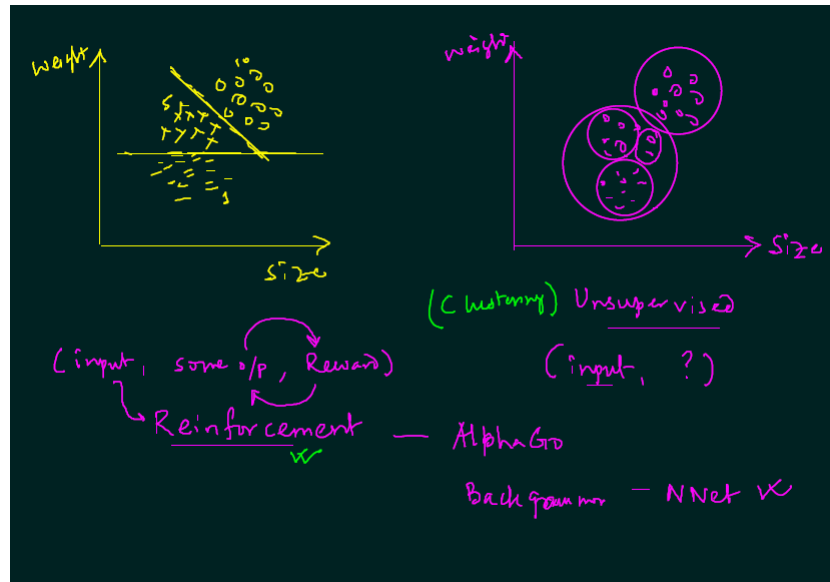 weight
10
5
1
size
weight
size
(Clustering) Unsupervised
(input, some o/p, Reward)
(input, ?)
Reinforcement — AlphaGo
Backgammon — NNet